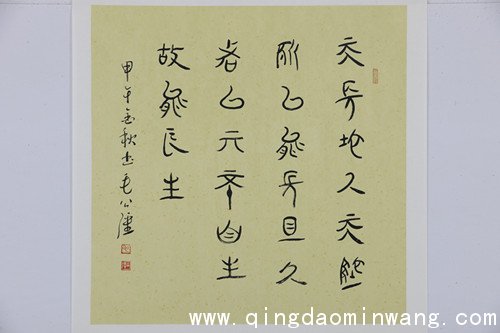 天長地久天地
所以能長且久
者以亓不自生
故能長生
甲午金秋书毛公
www.qingdaominwang.com